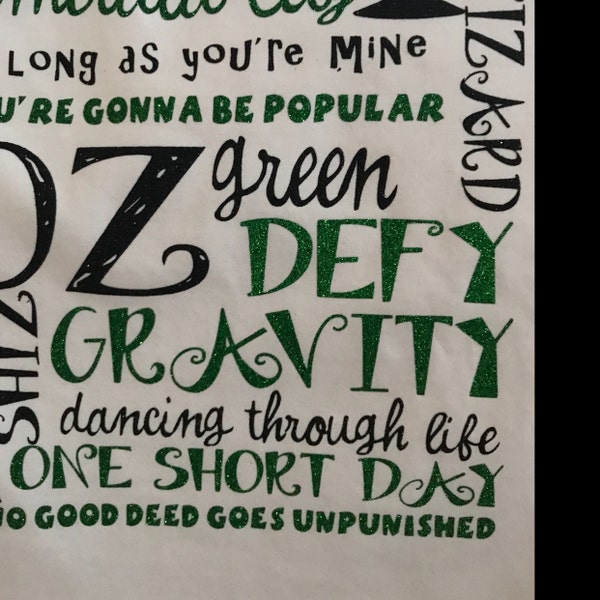 LONG as you're MINE
U'RE GONNA BE POPULAR
OZ
green
DEFY
GRAVITY
dancing through life
ONE SHORT DAY
NO GOOD DEED GOES UNPUNISHED
IZARD
SHIZ